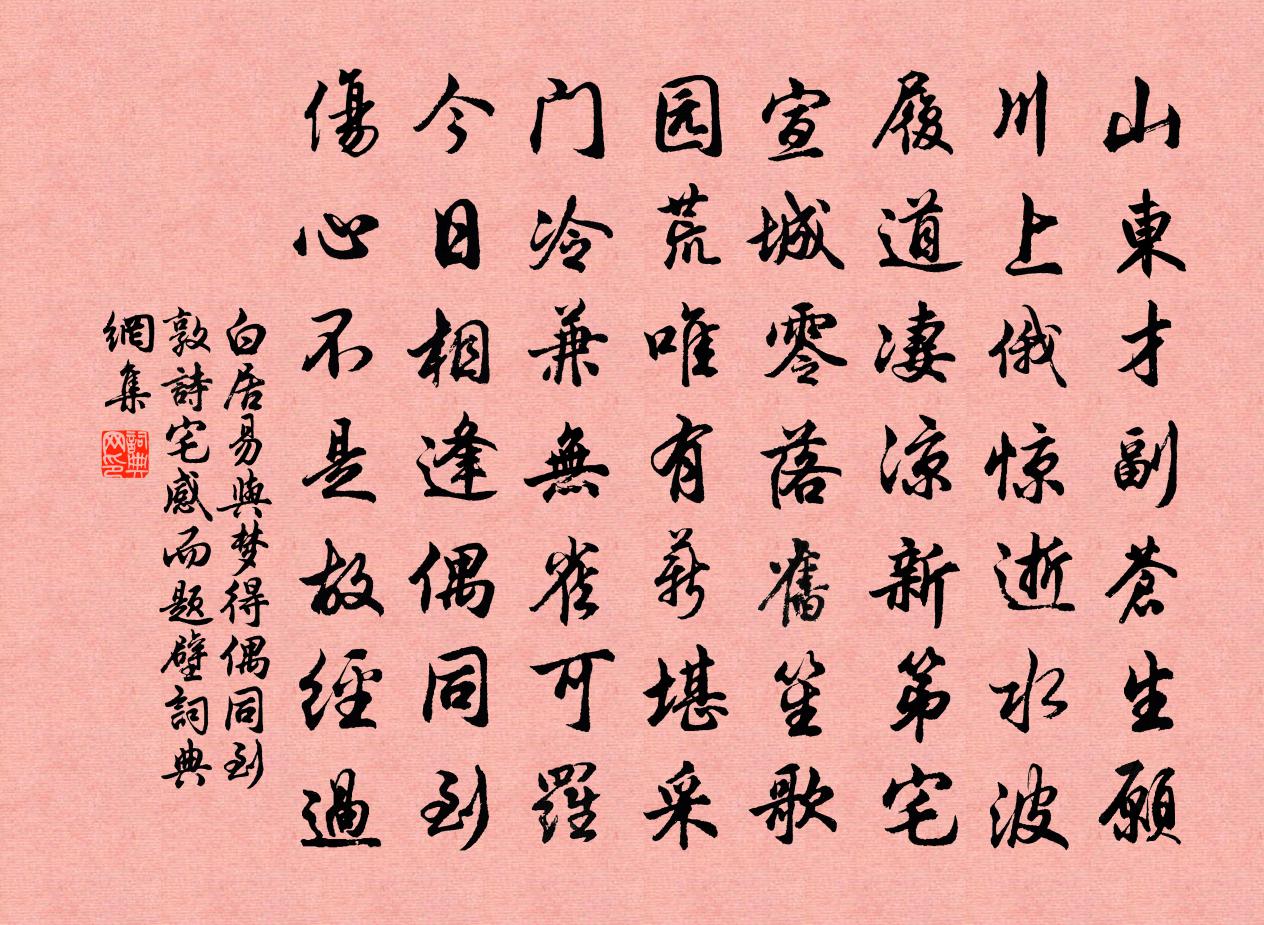 山東才副蒼生願
川上俄惊逝水波
履道凄涼新第宅
宣城零落舊笙歌
园荒唯有薪堪采
门冷兼無雀可羅
今日相逢偶同到
傷心不是故經過
白居易與梦得偶同到
敦詩宅感而题壁詞典
網集
詞典
网印